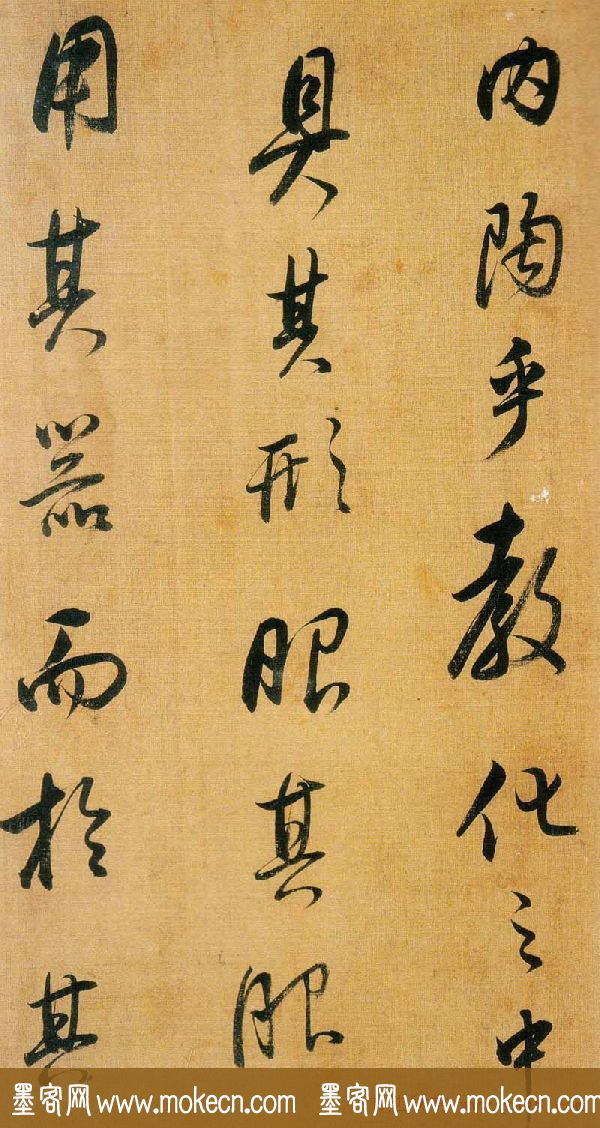 内陶乎教化之中
具其形服其服
用其器而於其
墨客网 www.mokecn.com 墨客网 www.mokecn.com